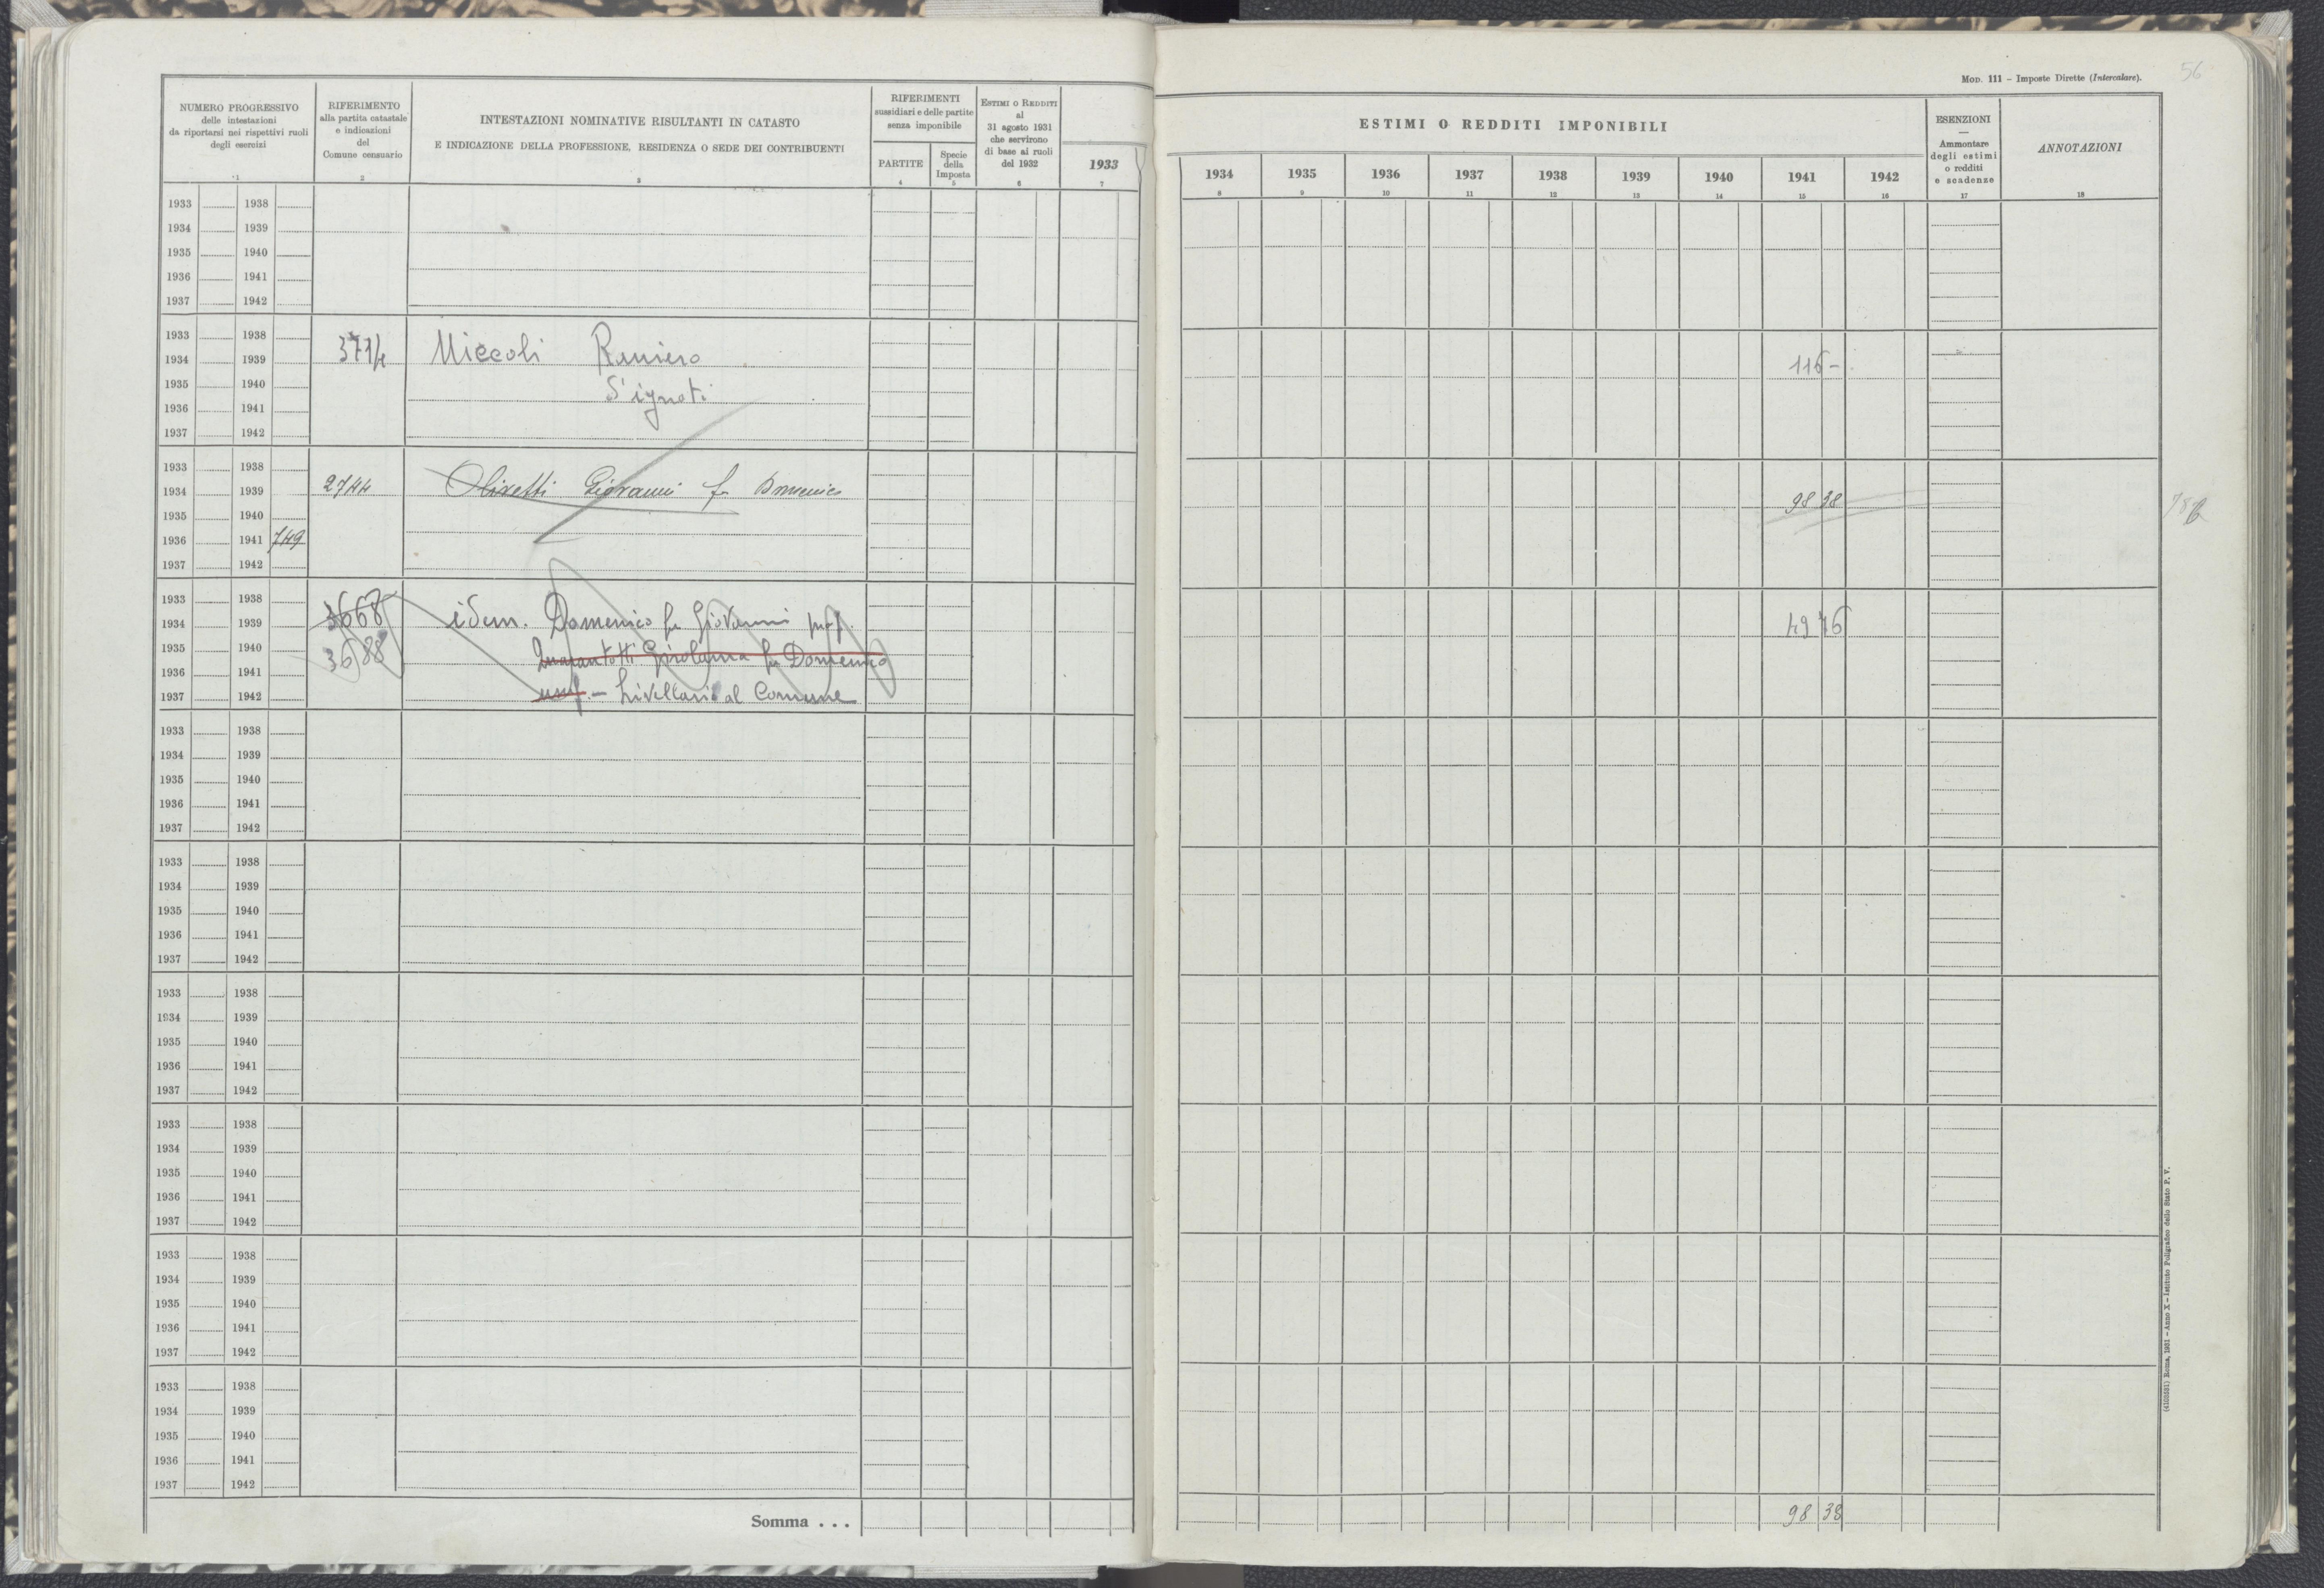 Mod. 111 – Imposte Dirette (Intercalare).
56
NUMERO PROGRESSIVO
delle intestazioni
da riportarsi nei rispettivi ruoli
degli esercizi
1
RIFERIMENTO
alla partita catastale
e indicazioni
del
Comune censuario
2
INTESTAZIONI NOMINATIVE RISULTANTI IN CATASTO
E INDICAZIONE DELLA PROFESSIONE, RESIDENZA O SEDE DEI CONTRIBUENTI
3
RIFERIMENTI
sussidiari e delle partite
senza imponibile
PARTITE
4
Specie
della
Imposta
5
Estimi o Redditi
al
31 agosto 1931
che servirono
di base ai ruoli
del 1932
6
1933
7
ESTIMI O REDDITI IMPONIBILI
1934 1935 1936 1937 1938 1939 1940 1941 1942
8 9 10 11 12 13 14 15 16
ESENZIONI
—
Ammontare
degli estimi
o redditi
e scadenze
17
ANNOTAZIONI
18
1933 1938
1934 1939
1935 1940
1936 1941
1937 1942
1933 1938
1934 1939 Miccoli Raniero 116 –
1935 1940 d'ignoti
1936 1941
1937 1942
1933 1938
1934 1939 2744 Olivetti Giovanni fu Domenico 98 38
1935 1940
1936 1941 749
1937 1942
1933 1938 3668
1934 1939 idem. Domenico fu Giovanni prop. 49 76
1935 1940 3688 Quarantotti Girolama fu Domenico
1936 1941
1937 1942 usuf. – Livellario al Comune
1933 1938
1934 1939
1935 1940
1936 1941
1937 1942
1933 1938
1934 1939
1935 1940
1936 1941
1937 1942
1933 1938
1934 1939
1935 1940
1936 1941
1937 1942
1933 1938
1934 1939
1935 1940
1936 1941
1937 1942
1933 1938
1934 1939
1935 1940
1936 1941
1937 1942
1933 1938
1934 1939
1935 1940
1936 1941
1937 1942
Somma . . . 98 38
(4103531) Roma, 1931 – Anno X – Istituto Poligrafico dello Stato P. V.